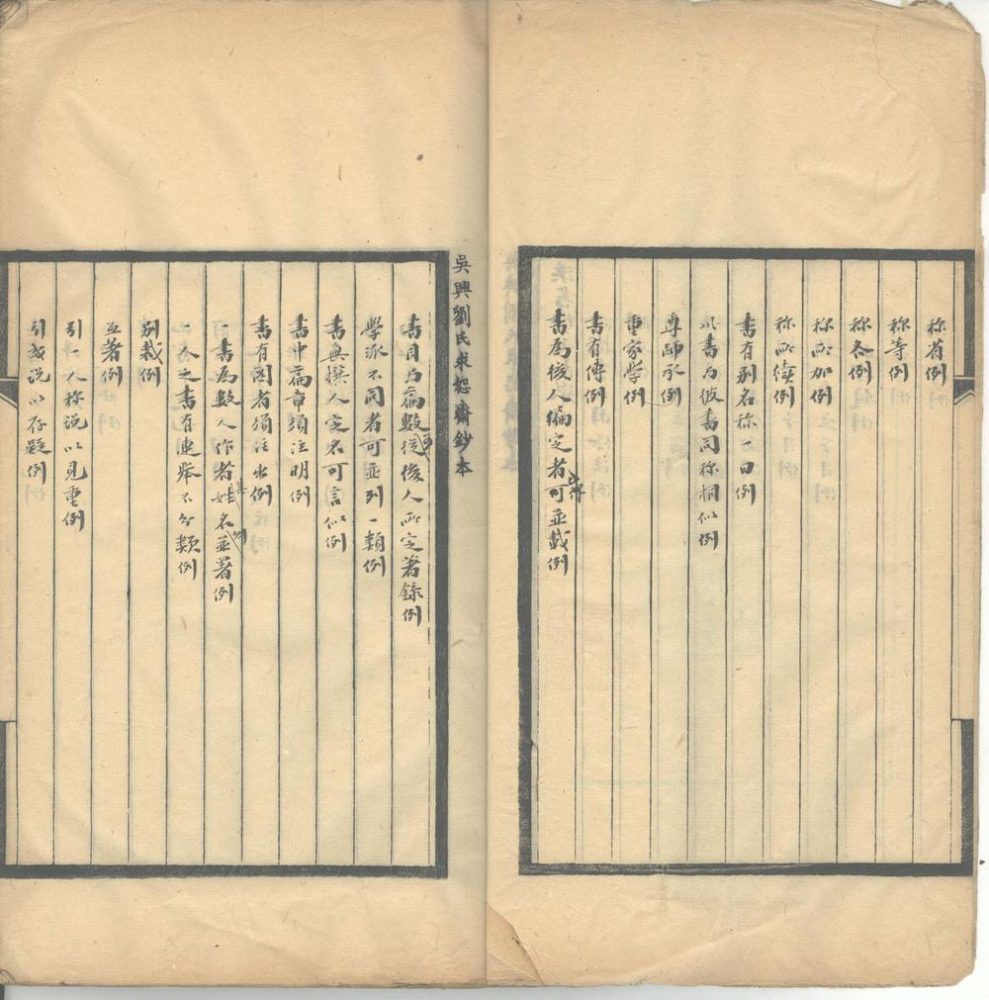 称省例
称等例
称各例
称所加例
称所續例
書有别名称一曰例
此書与彼書同称相似例
尊師承例
重家学例
書有傳例
書為後人編定者可並載例
吳興劉氏求恕齋鈔本
書目与篇數可從後人所定著錄例
學派不同者可並列一類例
書無撰人定名可言似例
書中篇章須注明例
書有圖者須注出例
一書為數人作者其姓名並署例
一人之書有連舉不分類例
别裁例
互著例
引一人称說以見重例
引或說以存疑例